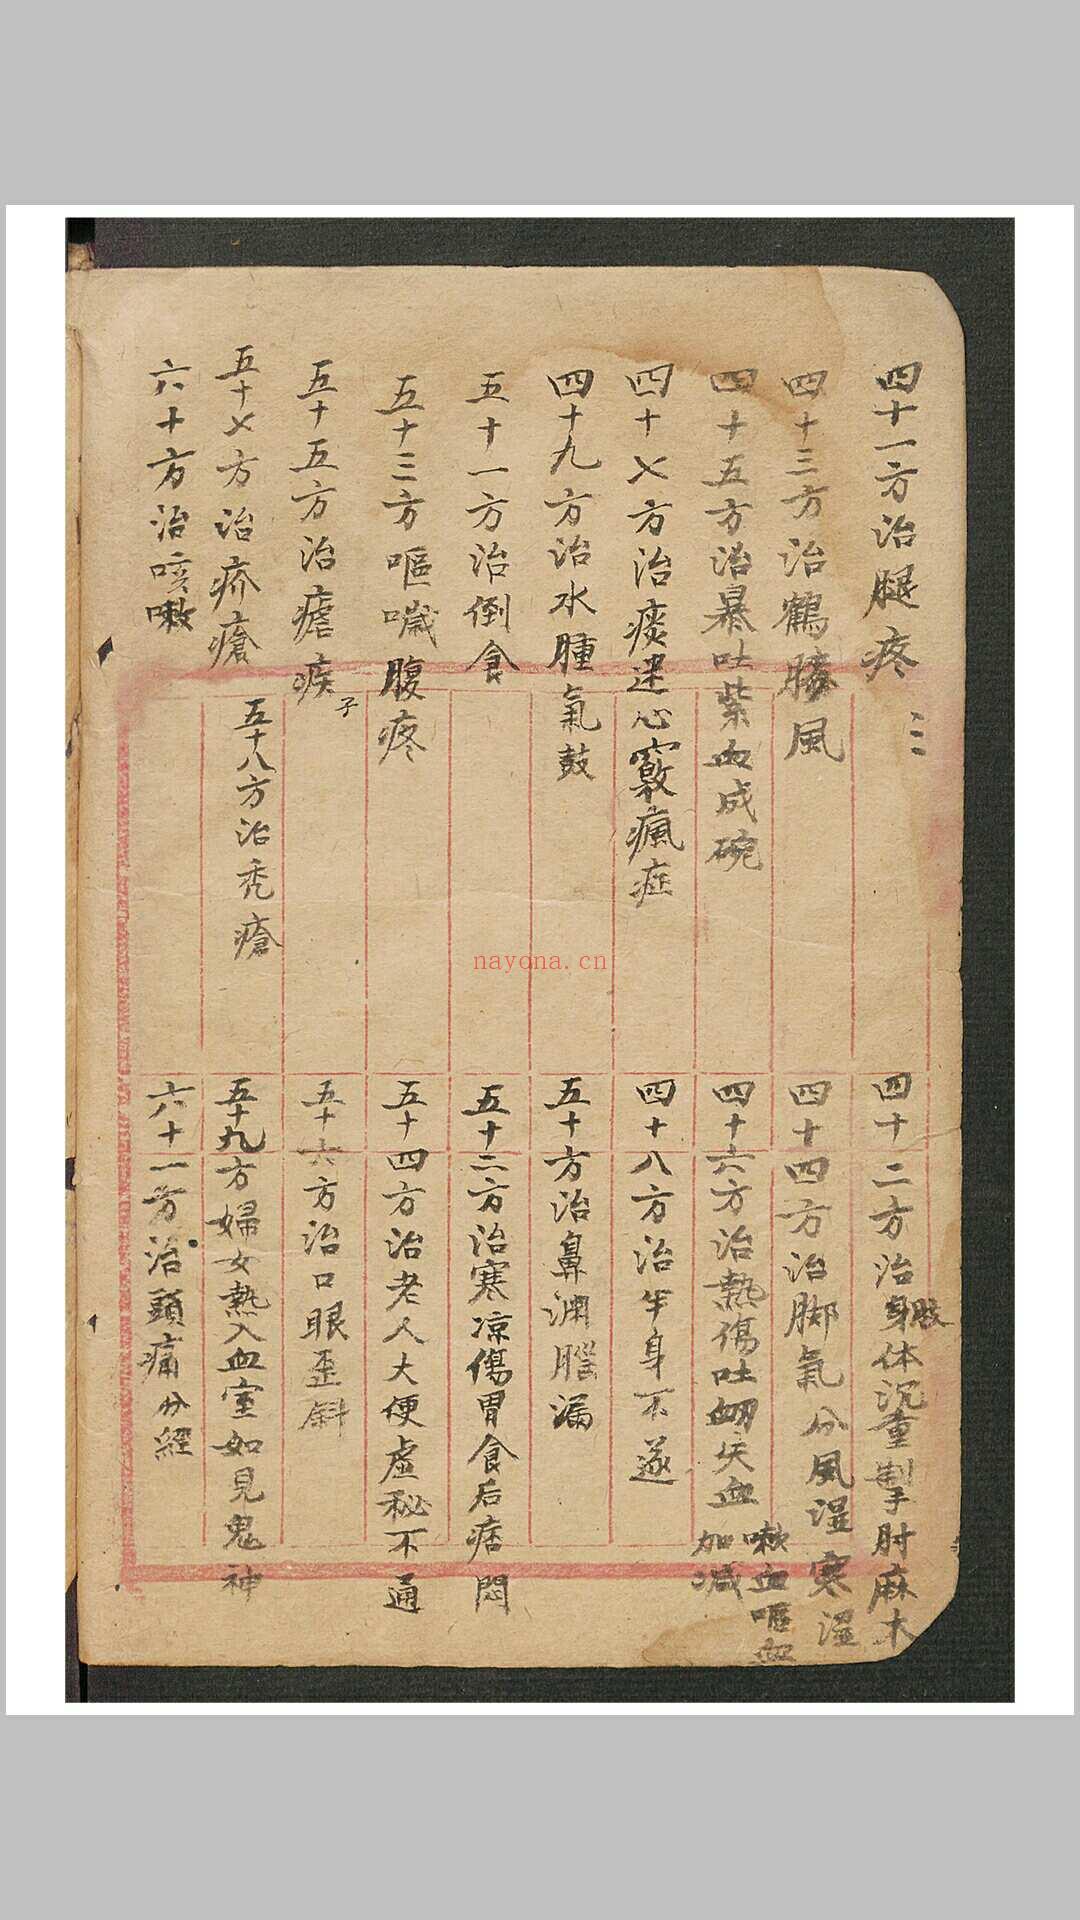 四十一方治腿疼
四十二方治身体沉重掣肘麻木
四十三方治鶴膝風
四十四方治脚氣分風湿寒湿
四十五方治暴吐紫血成碗
四十六方治熱傷吐衂失血
嗽血嘔血
加減
四十七方治痰迷心竅瘋症
四十八方治半身不遂
四十九方治水腫氣鼓
五十方治鼻渊腦漏
五十一方治倒食
五十二方治寒凉傷胃食后痞悶
五十三方嘔喊腹疼
五十四方治老人大便虛秘不通
五十五方治瘧疾
子
五十六方治口眼歪斜
五十七方治疥瘡
五十八方治秃瘡
五十九方婦女熱入血室如見鬼神
六十方治咳嗽
六十一方治頭痛分經
nayona.cn